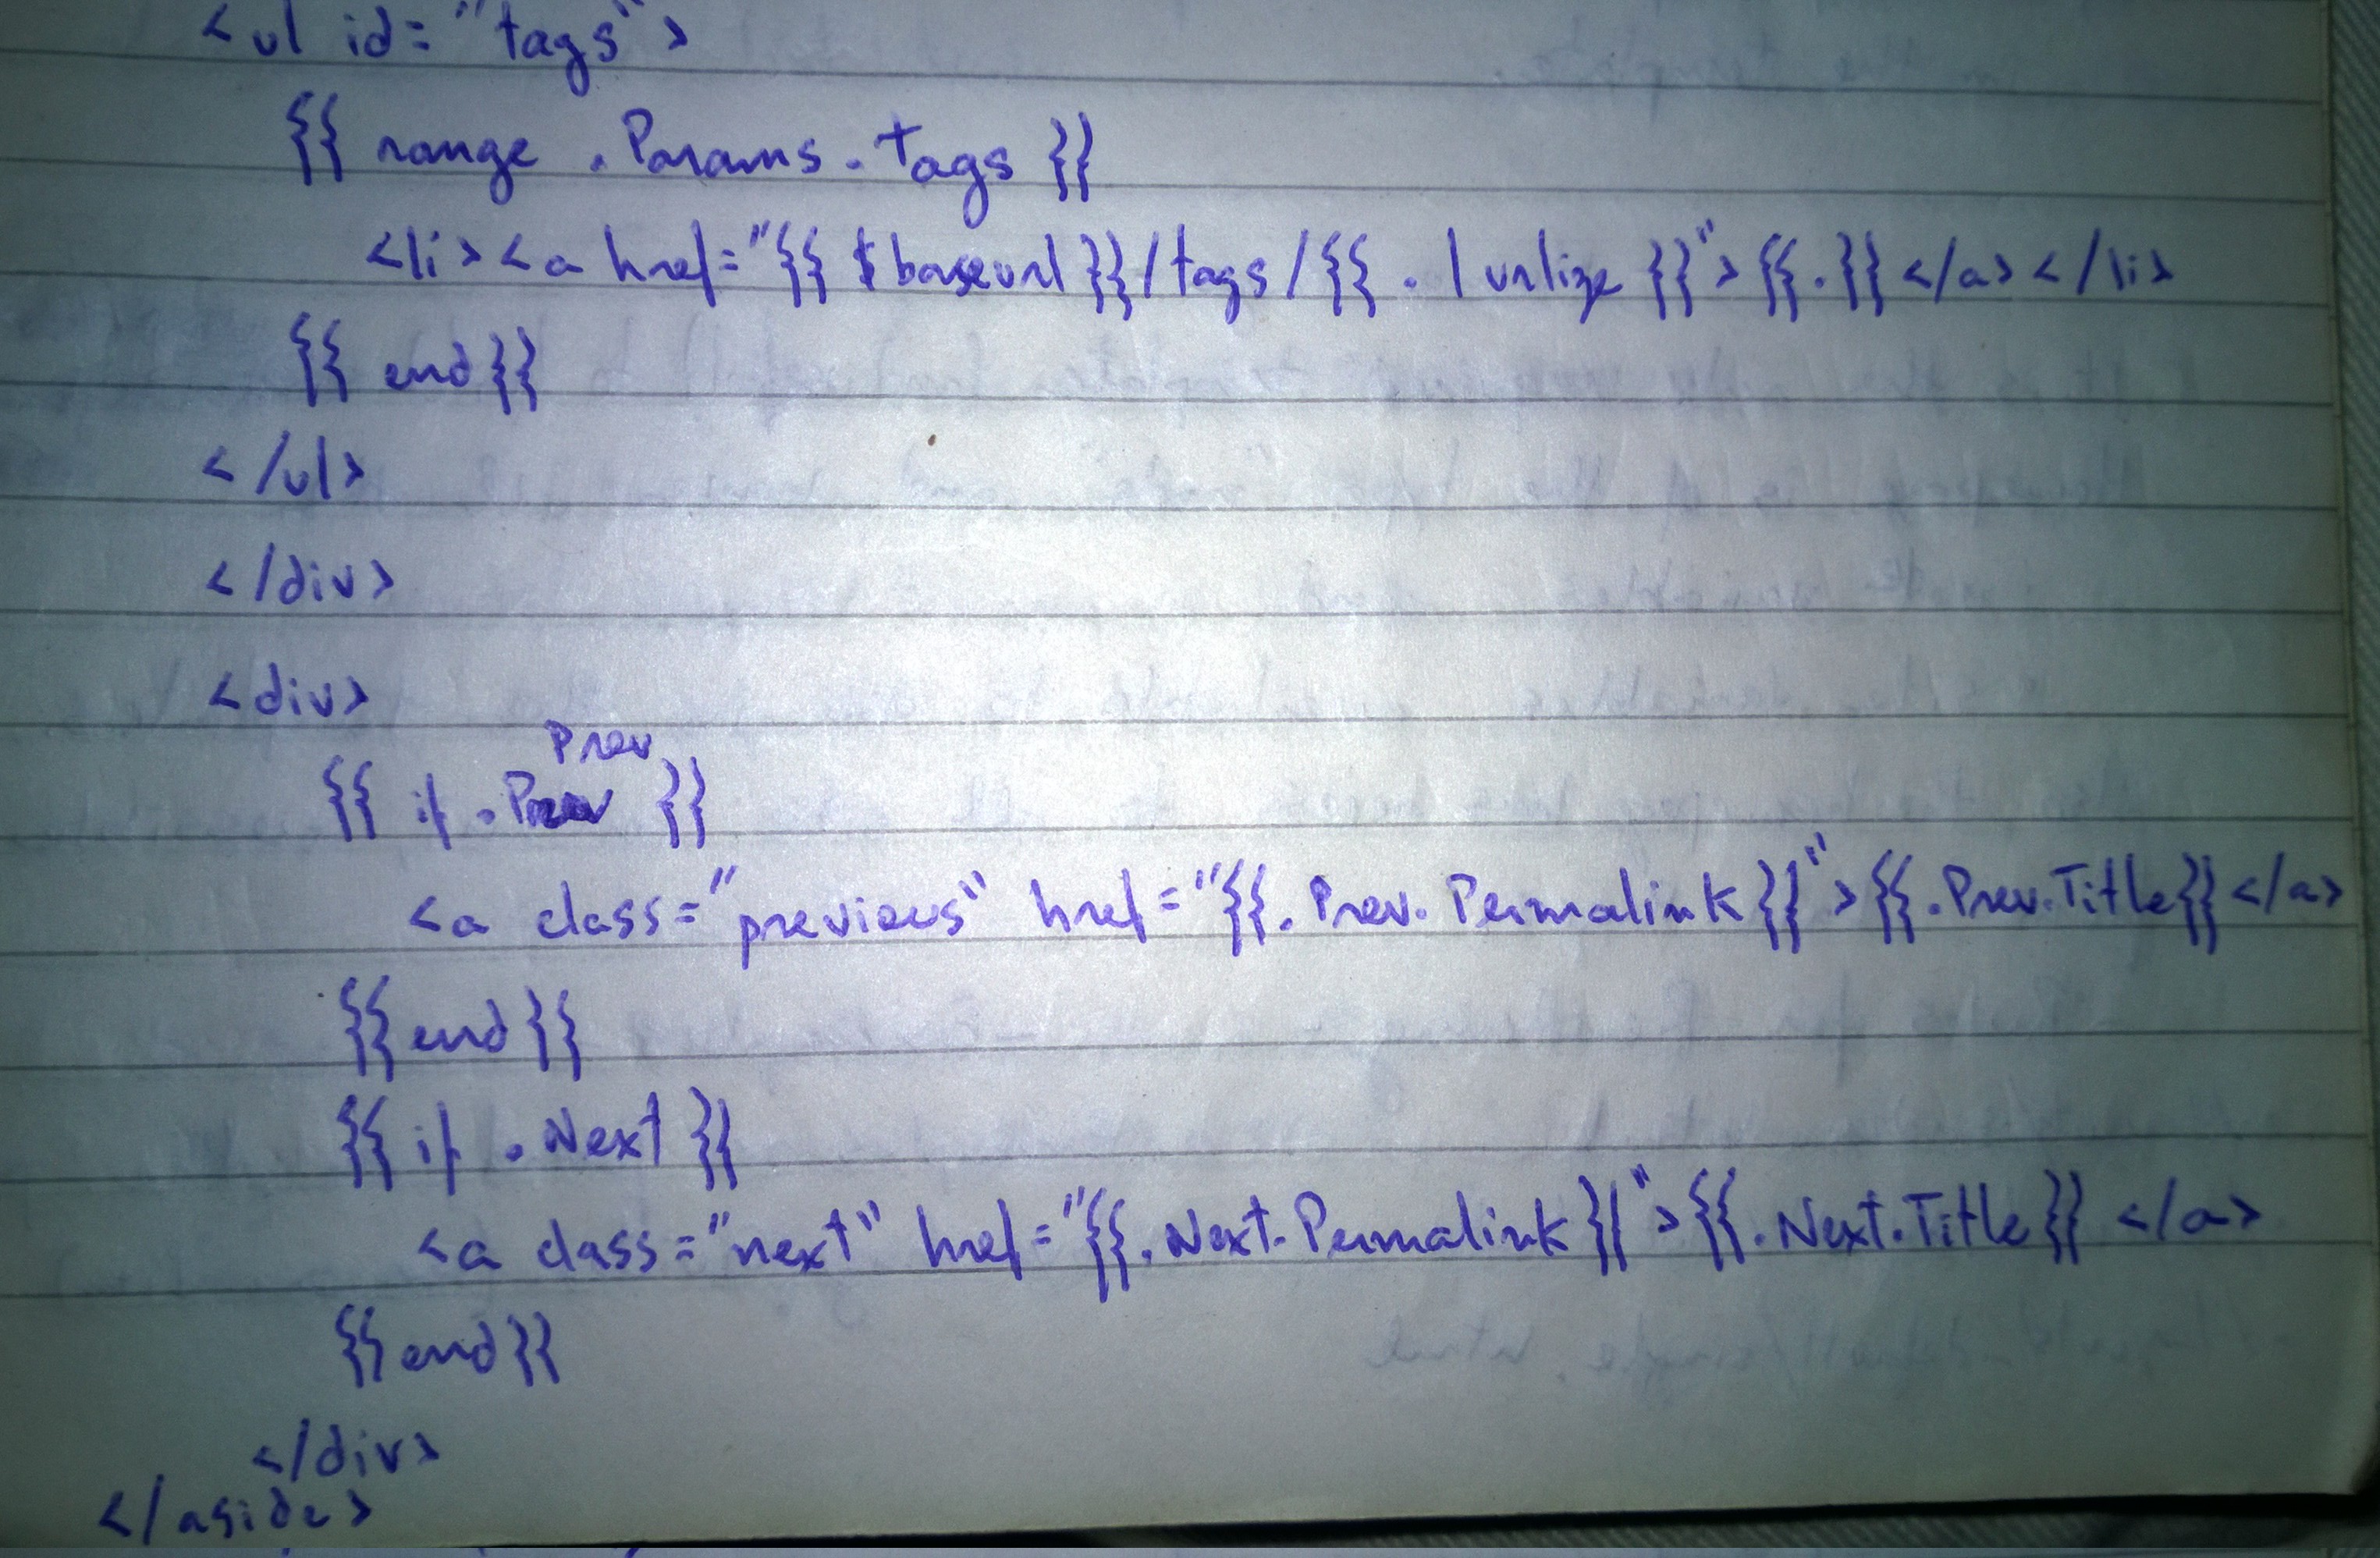 <ul id="tags">
{{ range .Params.tags }}
<li><a href="{{ $baseurl }}/tags/{{ . | urlize }}">{{ . }}</a></li>
{{ end }}
</ul>
</div>
<div>
Prev
{{ if .Prev }}
<a class="previous" href="{{.Prev.Permalink}}">{{.Prev.Title}}</a>
{{ end }}
{{ if .Next }}
<a class="next" href="{{.Next.Permalink}}">{{.Next.Title}}</a>
{{ end }}
</div>
</aside>